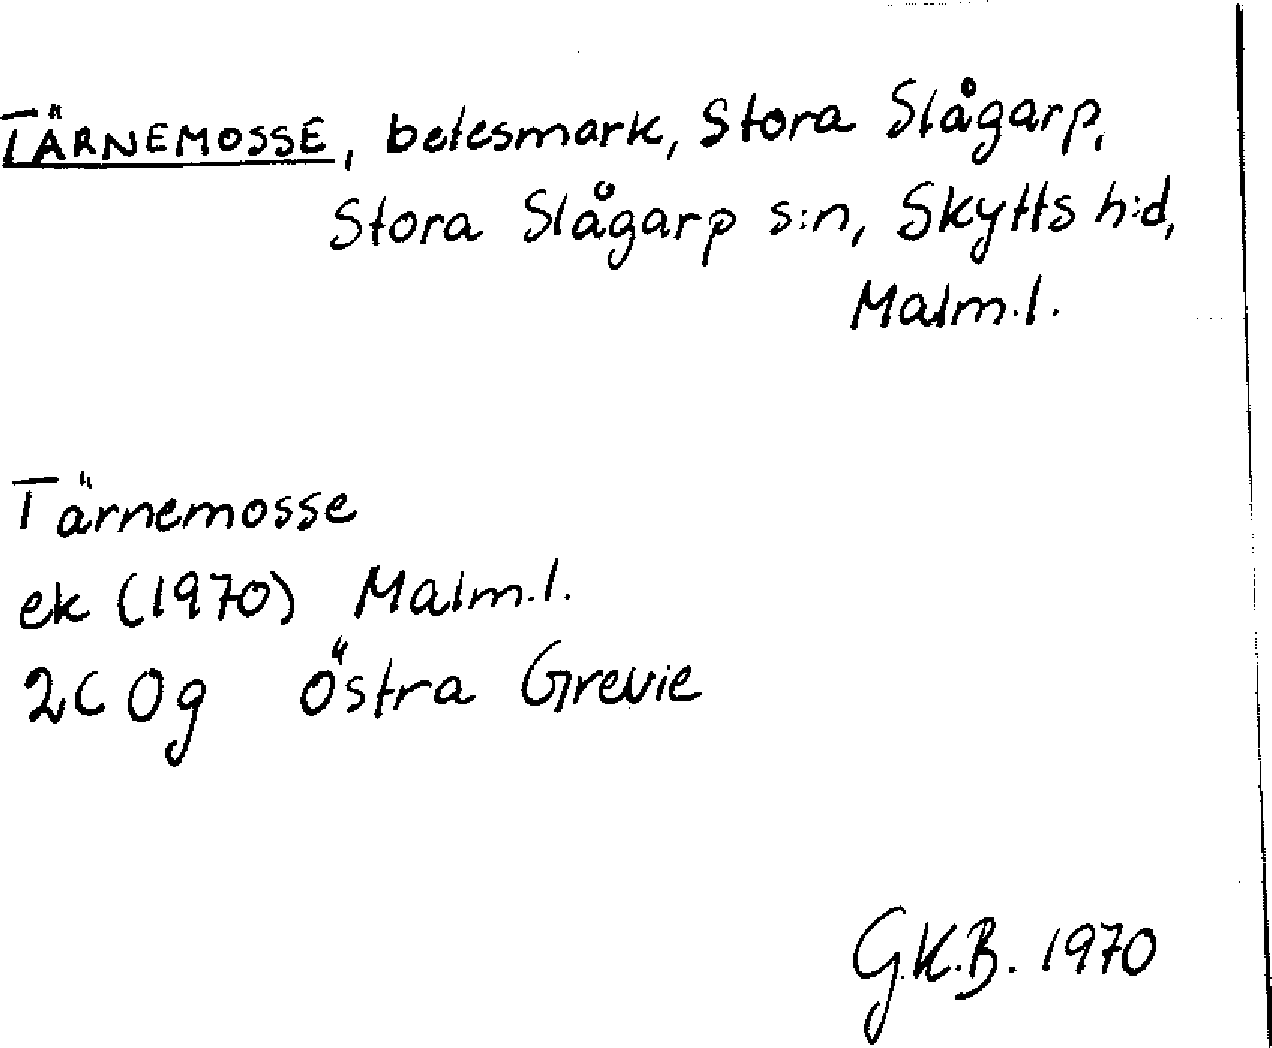 TÄRNEMOSSE, betesmark, Stora Slågarp,
Stora Slågarp s:n, Skytts h:d,
Malm.l.
Tärnemosse
ek (1970) Malm.l.
2C 0g Östra Grevie
G.K.B. 1970